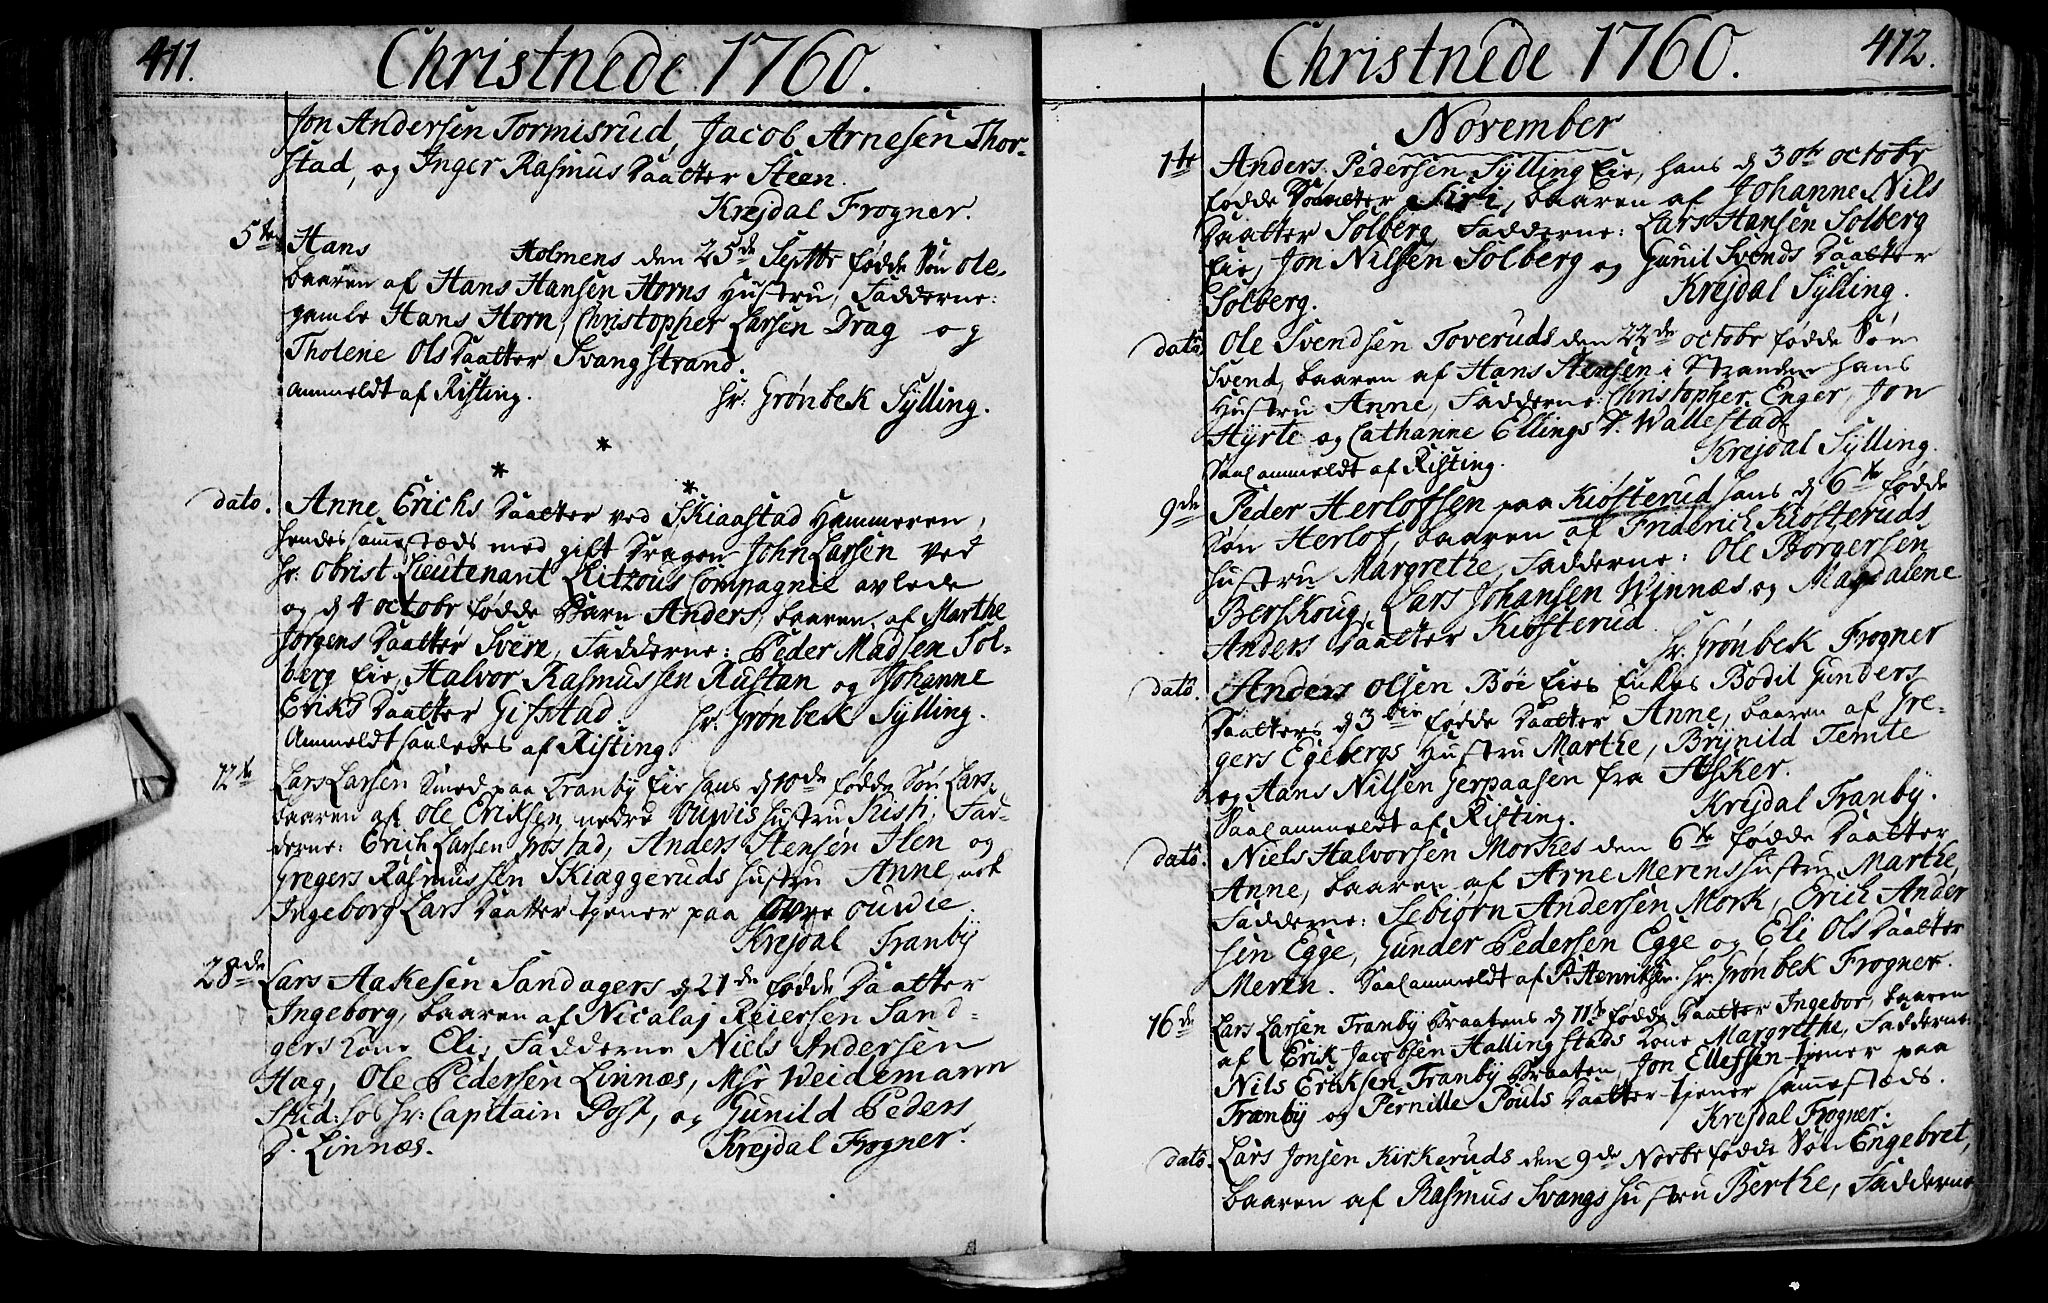 411.
Christnede 1760.
Jon Andersen Tormisrud, Jacob Arnesen Thor-
stad, og Inger Rasmus Daatter Steen.
Krejdal Frogner.
5te Hans Holmens den 25de Septbr fødde Søn Ole,
baaren af Hans Hansen Horns Hustru, Fadderne:
gamle Hans Horn, Christopher Larsen Drag og
Tholene Ols Daatter Svangstrand.
Anmeldt af Risting. Hr. Grönbek Sylling.
dato. Anne Erichs Daatter ved Skiaastad Hammeren,
hendes sammestæds med gift Dragon John Larsen ved
Hr. Obrist Lieutenant Litzous Compagnie avlede
og d 4 octobr fødde Barn Anders, baaren af Marthe
Jørgens Daatter Svere, Fadderne: Peder Madsen Sol-
berg Eie, Halvor Rasmussen Rustan og Johanne
Eriks Daatter Gifstad. Hr. Grönbek Sylling.
Anmeldt saaledes af Risting
12te Lars Larsen Smed paa Tranby Eie hans d 10de fødde Søn Lars,
baaren af Ole Eriksen nedre Ouwis Hustru Kisti, Fad-
derne: Erich Larsen Grostad, Anders Stensen Ilen og
Gregers Rasmussen Skiæggeruds Hustru Anne, nok
Ingeborg Lars Daatter tjener paa øvre Ouwie.
Krejdal Tranby
28de Lars Aakesen Sandagers d 21de fødde Daatter
Ingeborg, baaren af Nicolaj Reiersen Sand-
gers Kone Eli, Fadderne Niels Andersen
Hag, Ole Pedersen Linnæs, Msr Weidemann
Stud: hos Hr: Capitain Post, og Gunild Peders
D. Linnæs. Krejdal Frogner.
412.
Christnede 1760.
November
1te Anders Pedersen Sylling Eie, hans d 30te octobr
fødde Daatter Siri, baaren af Johanne Nils
Daatter Solberg, Fadderne: Lars Hansen Solberg
Eie, Jon Nilsen Solberg og Gunil Svends Daatter
Solberg. Krejdal Sylling.
dato Ole Svendsen Toveruds den 22de octobr fødde Søn
Svend, baaren af Hans Stensen i Stranden hans
Hustru Anne, Fadderne: Christopher Enger, Jon
Hyrte og Cathanne Ellings D. Wallestad
Krejdal Sylling.
Saal anmeldt af Risting.
9de Peder Herlofsen paa Kiösterud hans d 6te fødde
Søn Herlof, baaren af Friderich Kiösteruds
Hustru Margrethe, Fadderne: Ole Borgersen
Berskoug, Lars Johansen Winnæs og Magdalene
Anders Daatter Kiösterud
Hr. Grönbek Frogner
dato. Anders Olsen Böe Eies Enkes Bodil Gunders
Daatters d 3die fødde Daatter Anne, baaren af Gre-
gers Egebergs Hustru Marthe, Brynild Temte
og Hans Nilsen Gerpaasen fra Asker.
Krejdal Tranby.
Saal anmeldt af Risting.
dato. Niels Halvorsen Morkes den 6te fødde Daatter
Anne, baaren af Arne Merens Hustru Marthe,
Fadderne: Sebiörn Andersen Mork, Erich Ander
sen Egge, Gunder Pedersen Egge og Eli Ols Daatter
Meren. Saal anmeldt af P. Henriksen. Hr. Grönbek Frogner.
16de Lars Larsen Tranby Braatens d 11te fødde Daatter Ingebor, baaren
af Erik Jacobsen Hallingstads Kone Margrethe, Fadderne:
Nils Eriksen Tranby Braaten, Jon Ellefsen tjener paa
Tranby og Pernille Pouls Daatter tjener sammestæds.
Krejdal Frogner.
dato. Lars Jonsen Kirkeruds den 9de Novbr fødde Søn Engebret,
baaren af Rasmus Svangs Hustru Berthe, Fadderne